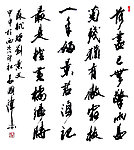 荷盡已無擎雨蓋
菊殘猶有傲霜枝
一年好景君須記
最是橙黃橘綠時
蘇軾贈劉景文